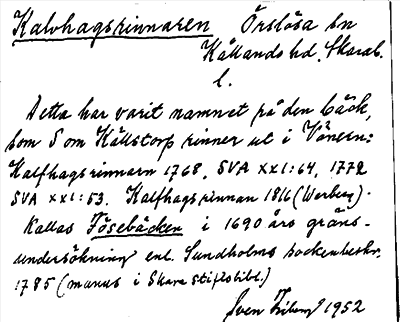 Kalvhagsrinnaren Örslösa sn
Kållands hd, Skarab.
l.
Detta har varit namnet på den bäck,
som S om Källstorp rinner ut i Vänern:
Kalfhagsrinnarn 1768, SVA XXI:64, 1772
SVA XXI:53. Kalfhagsrinnan 1816 (Werberg).
Kallas Fösebäcken i 1690 års gräns-
undersökning enl. Sundholms sockenbeskr.
1785 (manus i Skara stiftsbibl.)
Sven Friberg 1952